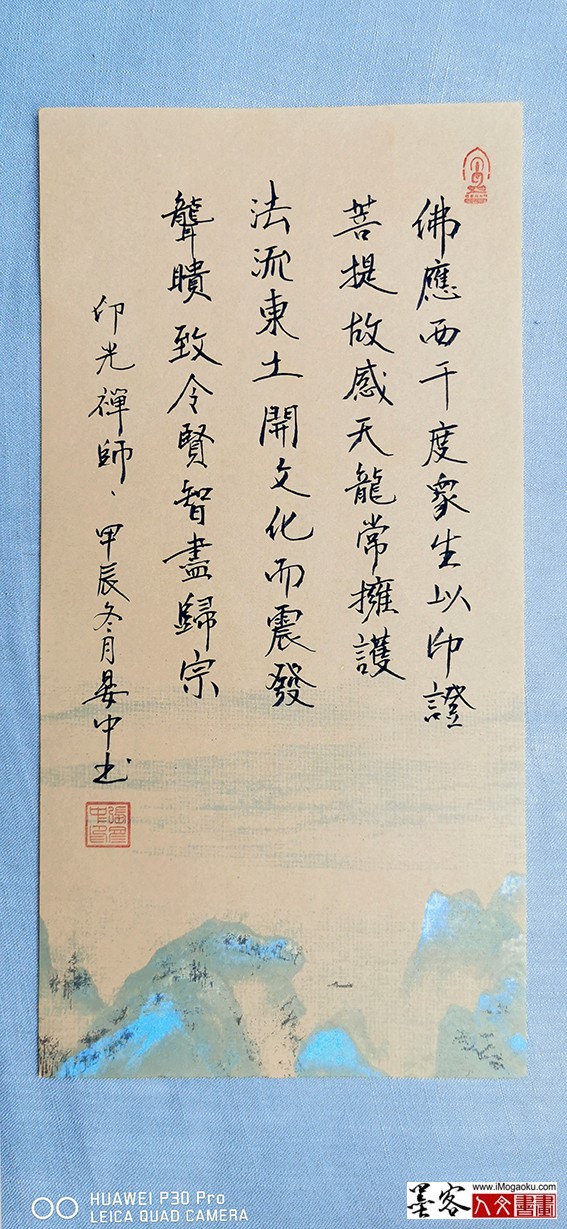 佛應西干度衆生以印證
菩提故感天龍常擁護
法流東土開文化而震發
聾瞶致令賢智盡歸宗
印光禪師、甲辰冬月晏中书
HUAWEI P30 Pro
LEICA QUAD CAMERA
www.iMogaoku.com
墨客人文書畫